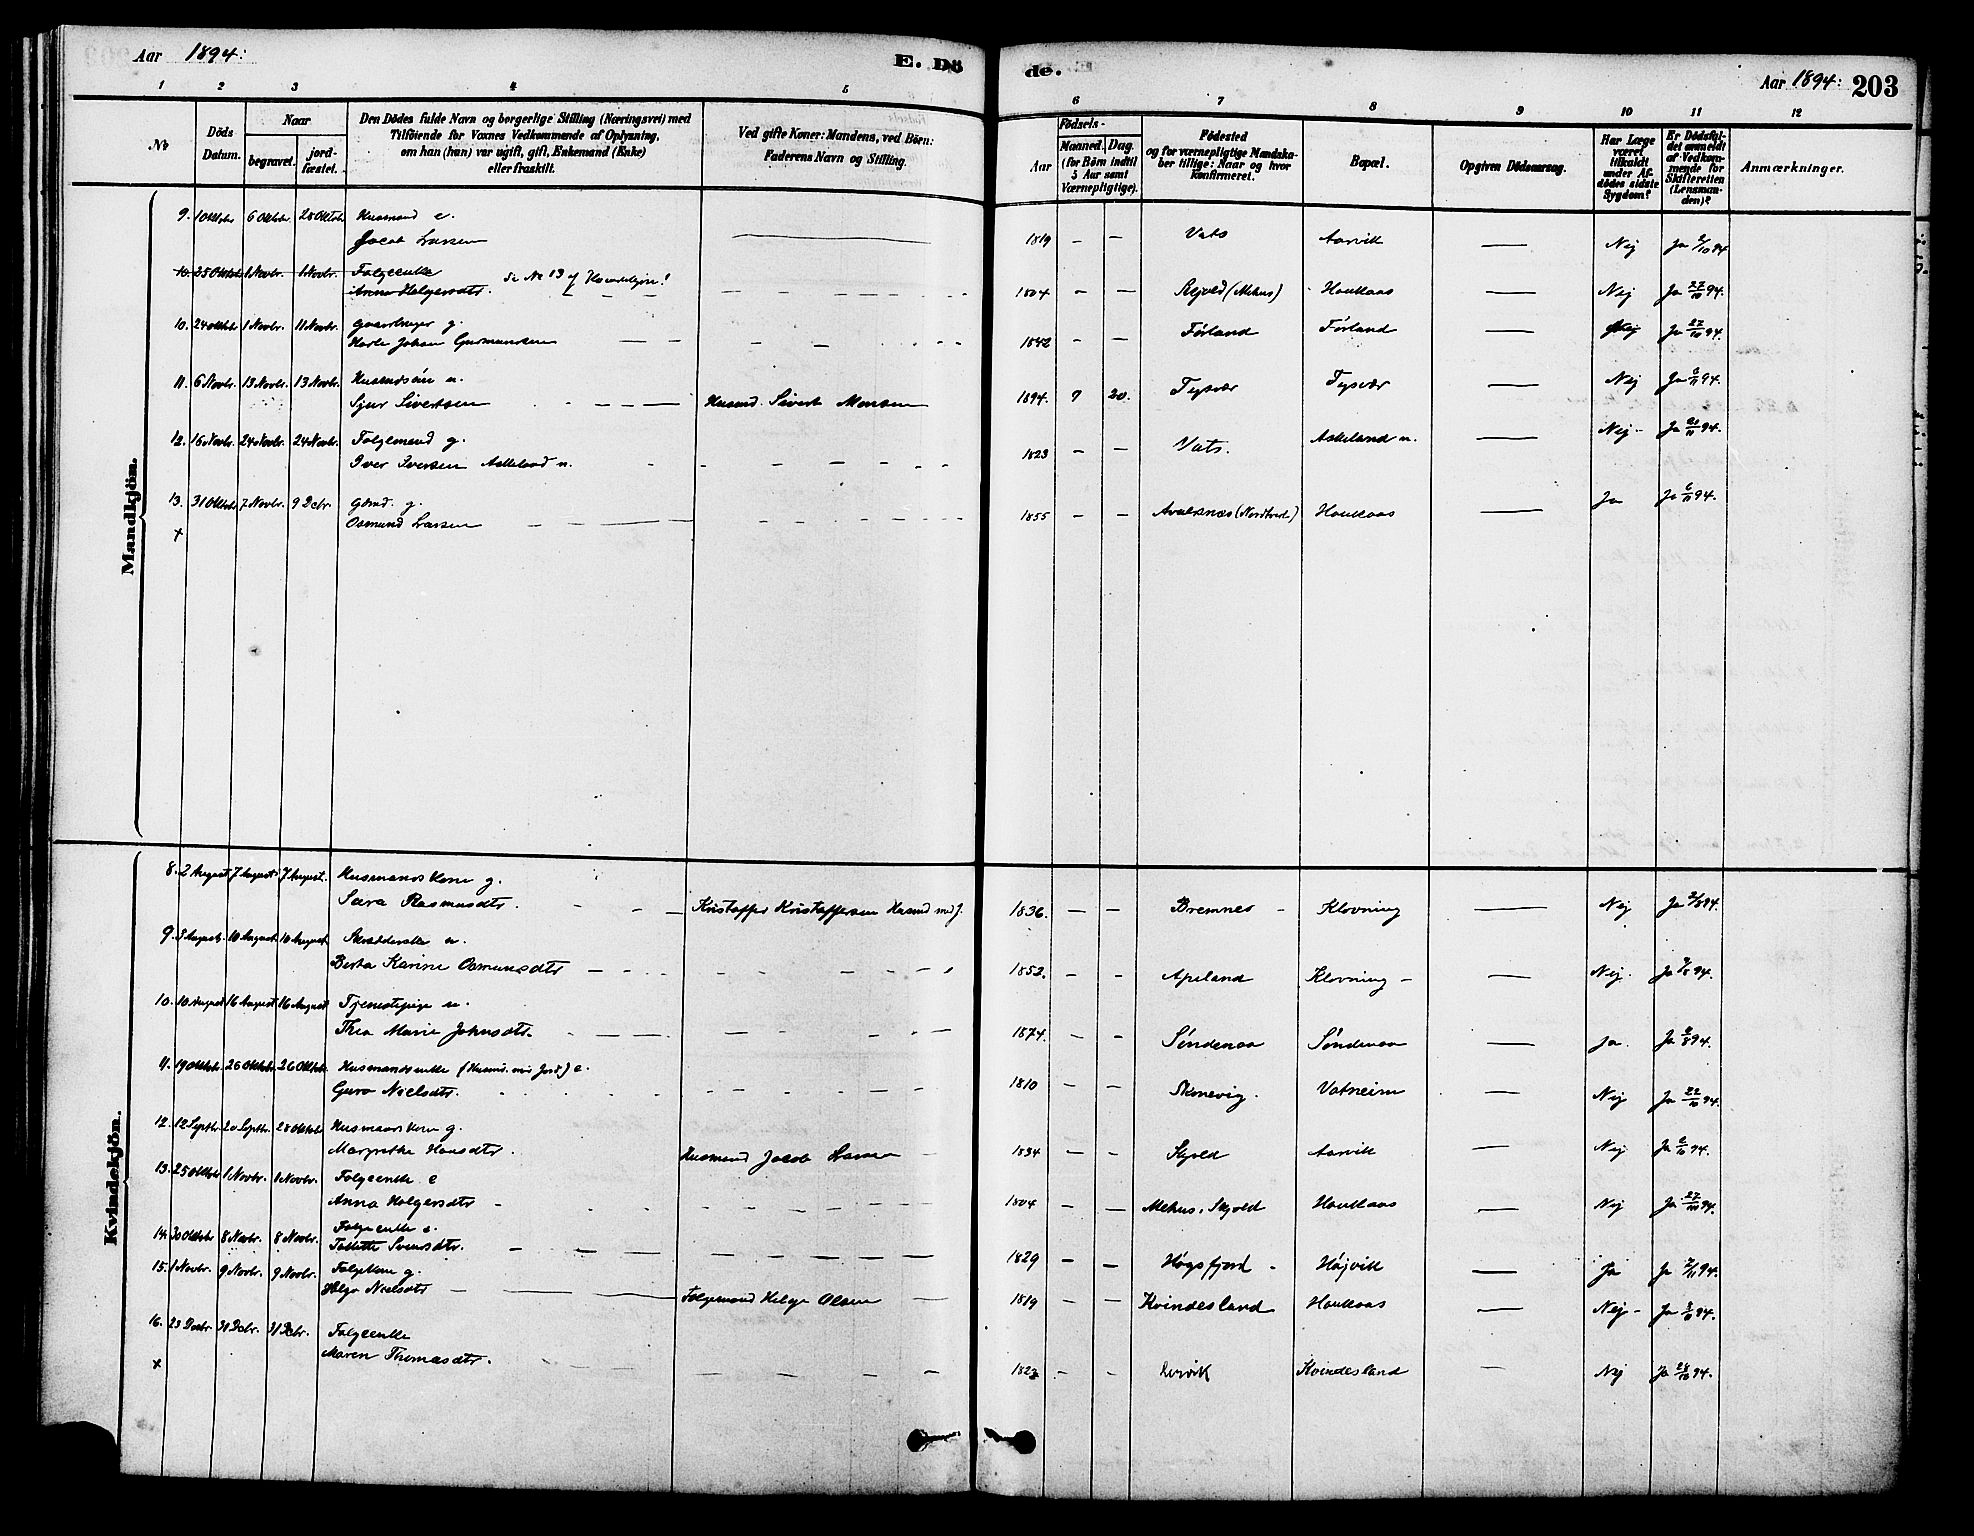 Aar 1894. E. Dö de. Aar 1894. 203
1 2 3 4 5 6 7 8 9 10 11 12
No
Döds Datum.
Naar
begravet.
jord-fæstet.
Den Dödes fulde Navn og borgerlige Stilling (Næringsvei) med
Tilföiende for Voxnes Vedkommende af Oplysning,
om han (hun) var ugift, gift, Enkemand (Enke)
eller fraskilt.
Ved gifte Koner: Mandens, ved Börn:
Faderens Navn og Stilling.
Födsels-
Aar
Maaned. Dag.
(for Börn indtil
5 Aar samt
Værnepligtige).
Födested
og for værnepligtige Mandska-
ber tillige: Naar og hvor
Konfirmeret.
Bopæl.
Opgiven Dödsaarsag.
Har Læge
været
tilkaldt
under Af-
dödes sidste
Sygdom?
Er Dödsfal-
det anmeldt
af Vedkom-
mende for
Skifteretten
(Lensman-
den)?
Anmærkninger.
Mandkjön.
9. 1 Oktbr 6 Oktbr. 28 Oktbr. Husmand e.
Jacob Larsen — 1819 — — Vats Aarvik — Nej Ja 2/10 94
10. 25 Oktbr 1 Novbr. 1 Novbr. Folgeenke
Anna Helgersdtr. Se No 13 af Kvindekjøn! 1804 — — Skjold (Mehus) Haukaas — Nej Ja 27/10 94.
10. 24 Oktbr 1 Novbr. 11 Novbr. Gaardbruger g.
Johan Gunnundsen — — 1842 — — Førland Førland — Nej Ja 27/10 94.
11. 6 Novbr. 13 Novbr. 13 Novbr. Husmdsøn u.
Sjur Sivertsen — Husmd. Sivert Monsen 1894. 7 20. Tysvær Tysvær — Nej Ja 8/11 94.
12. 16 Novbr. 24 Novbr. 24 Novbr. Folgemand g.
Iver Iversen Askeland n. 1823 — — Vats. Askeland n. — Nej Ja 20/11 94.
13. 31 Oktbr 7 Novbr. 9 Dcbr. Gbrd. g.
+ Osmund Larsen — 1855 — — Avaldsnes Haukaas — Ja Ja 6/11 94.
Kvindekjön.
8. 2 August 7 August 7 August. Husmandskone g.
Sara Rasmusdtr. — Kristoffer Kristoffersen Husmd med j. 1836. — — Bremnes Klovning — Nej Ja 3/8 94.
9. 3 August. 10 August. 10 August. u.
Berta Karine Osmundsdtr — 1852. — — Apeland Klovning — Nej. Ja 7/8 94.
10. 10 August 16 August 16 August Tjenestepige u.
Thea Marie Johnsdtr. — 1874. — — Søndenaa Søndenaa — Ja. Ja 94.
11. 19 Oktbr. 26 Oktbr. 26 Oktbr. Husmandsenke e.
Guro Nielsdtr. 1810 — — Skonevig. Vatneim — Nej Ja 22/10 94.
12. 12 Septbr. 20 Septbr. 28 Oktbr Husmandskone g.
Margrethe Hansdtr. Husmand Jacob Larsen 1834 — — Skjold Aarvik — Nej Ja 94.
13. 25 Oktbr. 1 Novbr. 1 Novbr. Folgeenke e
Anna Holgersdtr — 1804 — — Mehus, Skjold Haukaas — Nej Ja 27/10 94.
14. 30 Oktbr 8 Novbr. 8 Novbr. Folgeenke e.
Tollette Svendsdtr. — 1829 — — Høgsfjord Højvik — Ja Ja 94.
15. 1 Novbr. 9 Novbr. 9 Novbr. Folgekone g.
Helga Nielsdtr — Folgemand Helge Olsen 1819 — — Kvindesland Haukaas — Nej Ja 94.
16. 23 Decbr. 31 Dcbr. 31 Dcbr. Folgeenke
+ Maren Thomasdtr. 1823 — — Lervik Kvindesland — Nej Ja 94.